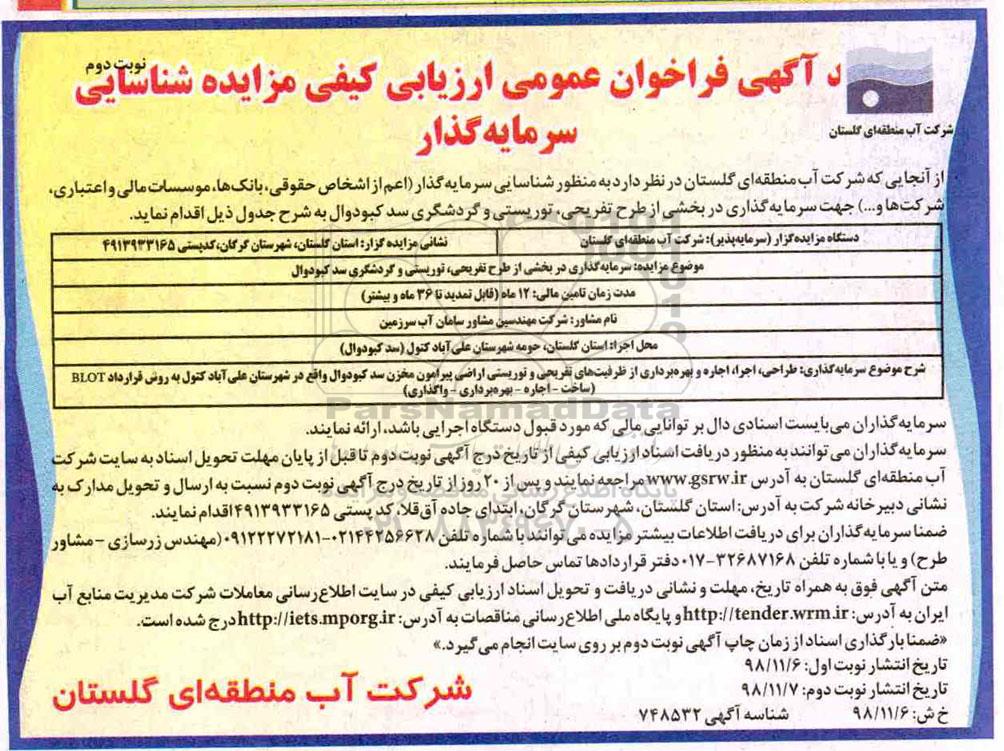 نوبت دوم
د آگهی فراخوان عمومی ارزیابی کیفی مزایده شناسایی
سرمایه‌گذار
شرکت آب منطقه‌ای گلستان
از آنجایی که شرکت آب منطقه‌ای گلستان در نظر دارد به منظور شناسایی سرمایه‌گذار (اعم از اشخاص حقوقی، بانک‌ها، موسسات مالی و اعتباری،
شرکت‌ها و...) جهت سرمایه‌گذاری در بخشی از طرح تفریحی، توریستی و گردشگری سد کبودوال به شرح جدول ذیل اقدام نماید.
دستگاه مزایده‌گزار (سرمایه‌پذیر): شرکت آب منطقه‌ای گلستان
نشانی مزایده گزار: استان گلستان، شهرستان گرگان، کدپستی ۴۹۱۳۹۳۳۱۶۵
موضوع مزایده: سرمایه‌گذاری در بخشی از طرح تفریحی، توریستی و گردشگری سد کبودوال
مدت زمان تامین مالی: ۱۲ ماه (قابل تمدید تا ۳۶ ماه و بیشتر)
نام مشاور: شرکت مهندسین مشاور سامان آب سرزمین
محل اجرا: استان گلستان، حومه شهرستان علی آباد کتول (سد کبودوال)
شرح موضوع سرمایه‌گذاری: طراحی، اجرا، اجاره و بهره‌برداری از ظرفیت‌های تفریحی و توریستی اراضی پیرامون مخزن سد کبودوال واقع در شهرستان علی‌آباد کتول به روش قرارداد BLOT
(ساخت - اجاره - بهره‌برداری - واگذاری)
ParsNamadData
سرمایه‌گذاران می‌بایست اسنادی دال بر توانایی مالی که مورد قبول دستگاه اجرایی باشد، ارائه نمایند.
سرمایه‌گذاران می‌توانند به منظور دریافت اسناد ارزیابی کیفی از تاریخ درج آگهی نوبت دوم تا قبل از پایان مهلت تحویل اسناد به سایت شرکت
آب منطقه‌ای گلستان به آدرس www.gsrw.ir مراجعه نمایند و پس از ۲۰ روز از تاریخ درج آگهی نوبت دوم نسبت به ارسال و تحویل مدارک به
نشانی دبیرخانه شرکت به آدرس: استان گلستان، شهرستان گرگان، ابتدای جاده آق‌قلا، کد پستی ۴۹۱۳۹۳۳۱۶۵ اقدام نمایند.
ضمنا سرمایه‌گذاران برای دریافت اطلاعات بیشتر مزایده می‌توانند با شماره تلفن ۰۲۱۴۴۲۵۶۶۲۸-۰۹۱۲۲۲۷۲۱۸۱ (مهندس زرسازی - مشاور
طرح) و یا با شماره تلفن ۳۲۶۸۷۱۶۸-۰۱۷ دفتر قراردادها تماس حاصل فرمایند.
متن آگهی فوق به همراه تاریخ، مهلت و نشانی دریافت و تحویل اسناد ارزیابی کیفی در سایت اطلاع‌رسانی معاملات شرکت مدیریت منابع آب
ایران به آدرس: http://tender.wrm.ir و پایگاه ملی اطلاع‌رسانی مناقصات به آدرس: http://iets.mporg.ir درج شده است.
«ضمنا بارگذاری اسناد از زمان چاپ آگهی نوبت دوم بر روی سایت انجام می‌گیرد.»
تاریخ انتشار نوبت اول: ۹۸/۱۱/۶
تاریخ انتشار نوبت دوم: ۹۸/۱۱/۷
خ ش: ۹۸/۱۱/۶ شناسه آگهی ۷۴۸۵۳۲
شرکت آب منطقه‌ای گلستان